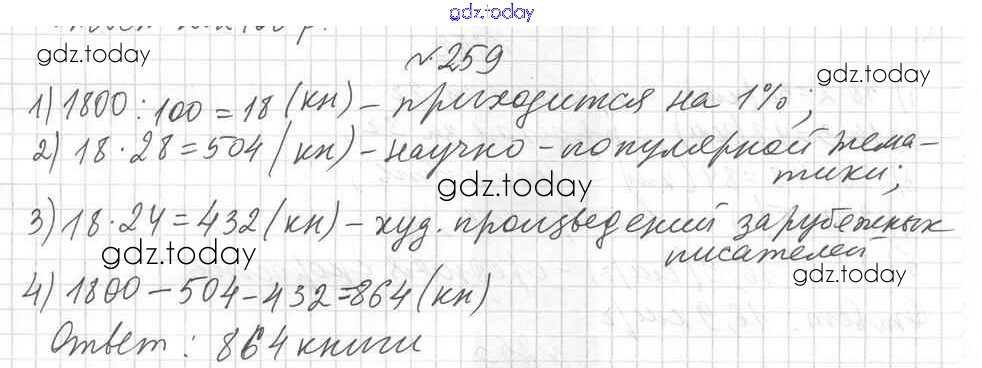 gdz.today
gdz.today
№ 259
gdz.today
1) 1800 : 100 = 18 (кн) – приходится на 1%;
2) 18 · 28 = 504 (кн) – научно-популярной тема-
тики;
gdz.today
3) 18 · 24 = 432 (кн) – худ. произведений зарубежных
писателей
gdz.today
gdz.today
4) 1800 – 504 – 432 = 864 (кн)
Ответ: 864 книги